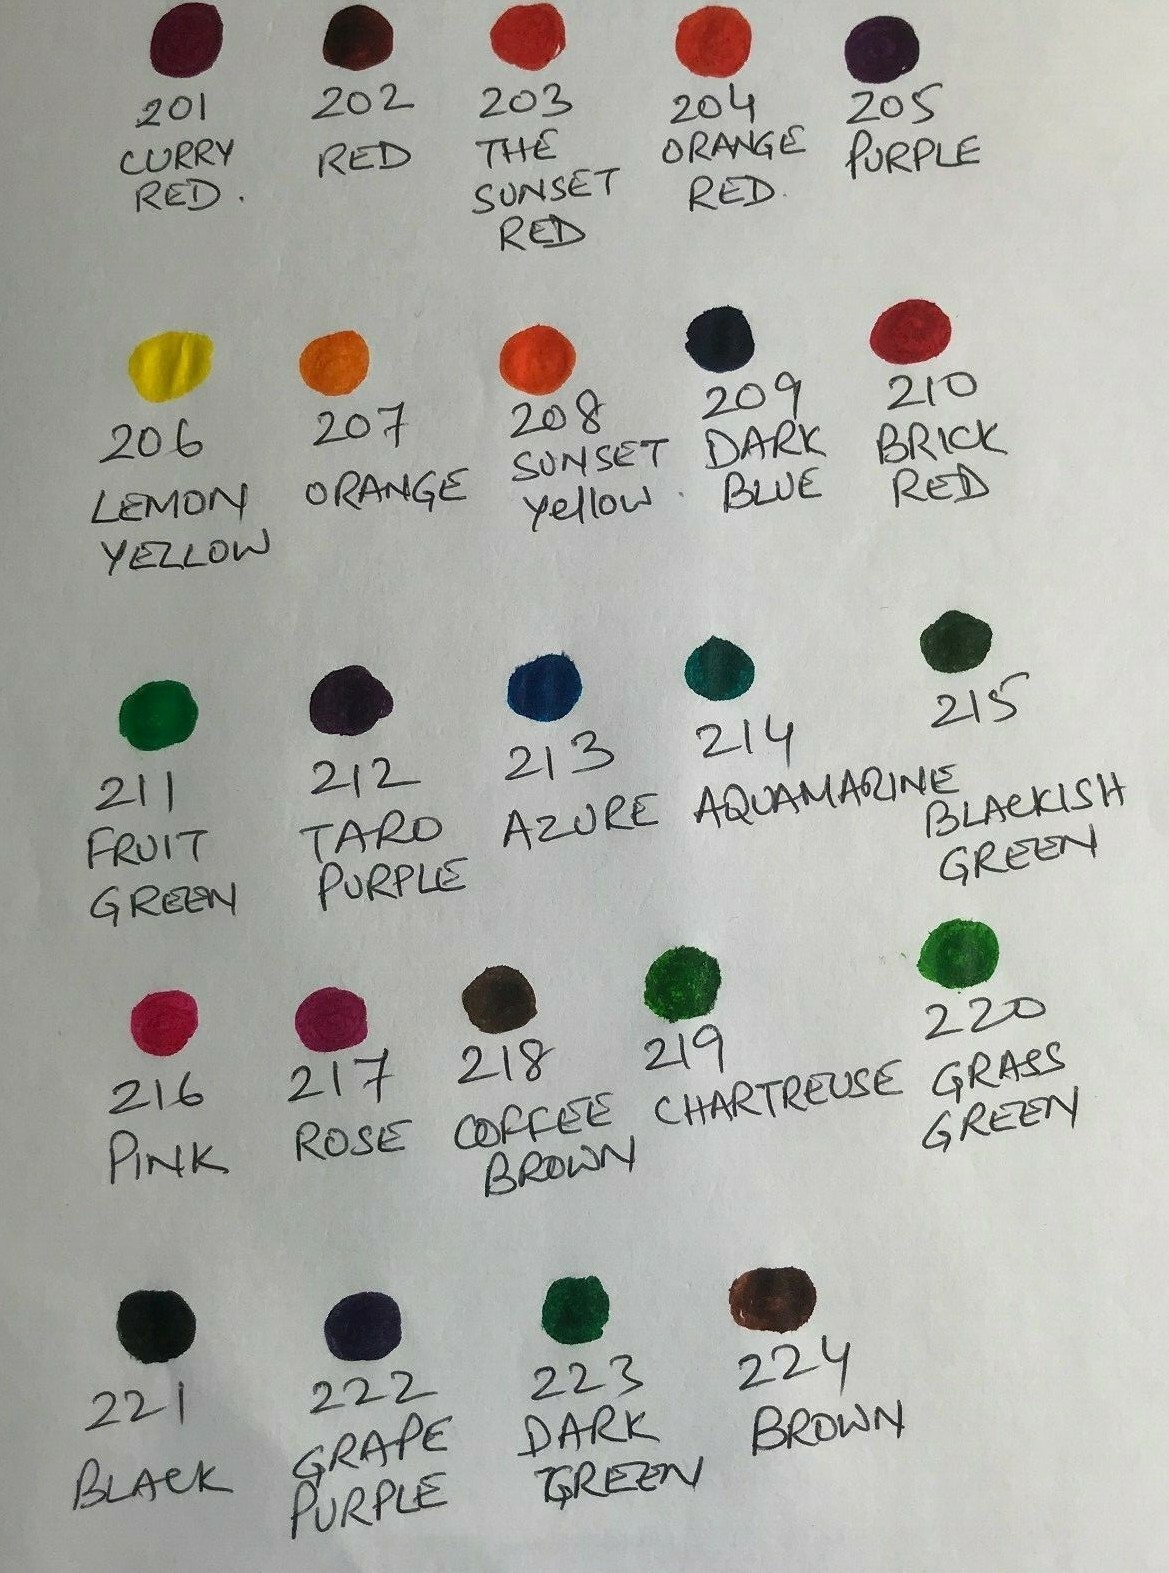 201 202 203 204 205
CURRY RED THE ORANGE PURPLE
RED. SUNSET RED.
RED
206 207 208 209 210
LEMON ORANGE SUNSET DARK BRICK
YELLOW yellow. BLUE RED
211 212 213 214 215
FRUIT TARO AZURE AQUAMARINE BLACKISH
GREEN PURPLE GREEN
216 217 218 219 220
PINK ROSE COFFEE CHARTREUSE GRASS
BROWN GREEN
221 222 223 224
BLACK GRAPE DARK BROWN
PURPLE GREEN